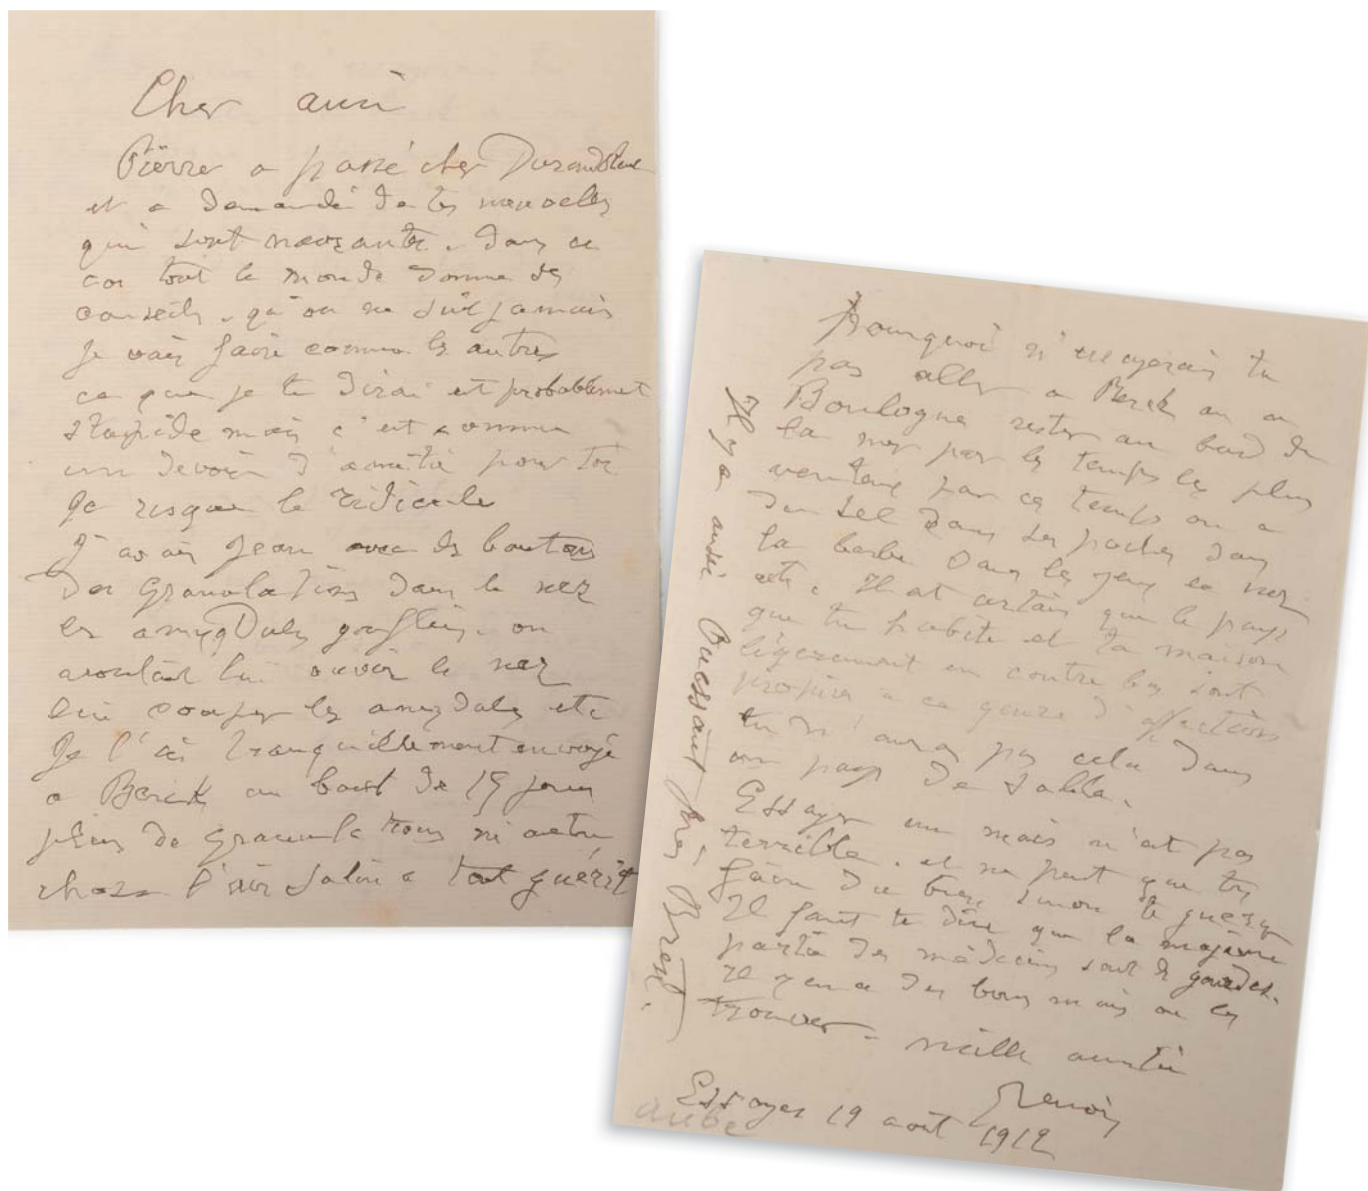 Cher ami
Pierre a passé chez Durand Ruel
et a demandé de tes nouvelles
qui sont navrantes. Dans ce
cas tout le monde donne des
conseils, qu'on ne suit jamais
je vais faire comme les autres
ce que je te dirai est probablement
stupide mais c'est comme
un devoir d'amitié pour toi
Je risque le ridicule
J'avais Jean avec des boutons
des granulations dans le nez
les amygdales gonflées. on
voulait lui ouvrir le nez
lui couper les amygdales etc
Je l'ai tranquillement envoyé
a Berck au bout de 15 jours
plus de granulations ni autre
chose l'air salin a tout guérit
Pourquoi n'essayerais tu
pas aller a Berck ou a
Boulogne rester au bord de
la mer par les temps les plus
venteux par ces temps on a
du sel dans les poches dans
la barbe dans les yeux le nez
etc. Il est certain que le pays
que tu habite et ta maison
légèrement en contre bas sont
propices a ce genre d'affections
tu n'auras pas cela dans
un pays de sable.
Essayer un mois n'est pas
terrible. et ne peut que te
faire du bien, sinon te guérir
Il faut te dire que la majeure
partie des médecins sont des gourdes.
il y en a des bons mais ou les
trouver – vieille amitié
Renoir
Essoyes 19 août 1912
aube
Il y a aussi Ouessant près Brest.